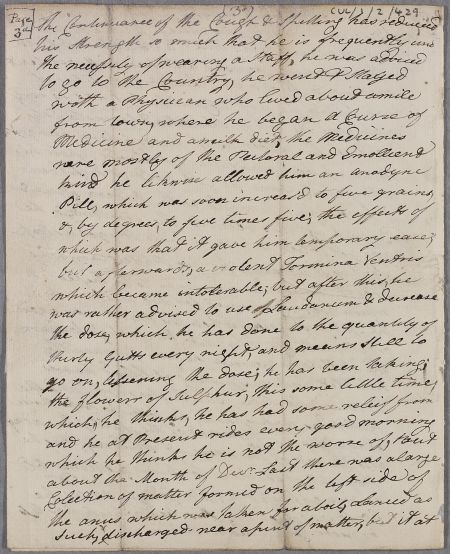 Page 3d (3d) CUL/3/2/429
The Continuance of the Cough & Spitting has reduced
his Strength so much that he is frequently under
the necessity of wearing a Staff, he was advised
to go to the Country, he went & Stayed
with a Physician who lived about a mile
from town, where he began a Curse of
Medicine and a milk diet, the Medicines
were mostly of the Pectoral and Emollient
kind he likewise allowed him an anodyne
Pill, which was soon increas'd to five grains,
& by degrees, to five times five, the effects of
which was that it gave him temporary ease;
but afterwards, a violent Tormina Ventris
which became intolerable; but after this, he
was rather advised to use Laudanum & decrease
the dose, which he has done to the quantity of
thirty Gutts every night, and means still to
go on, lessening the dose; he has been taking
the flowers of Sulphur, this some little time,
which, he thinks, he has had some releif from
and he at Present rides every good morning
which he thinks he is not the worse of, But
about the Month of Decr. Last there was a large
Colection of matter formed on the left side of
the anus which was taken for a boil, & Lanced as
Such, discharged near a pint of matter, but it at